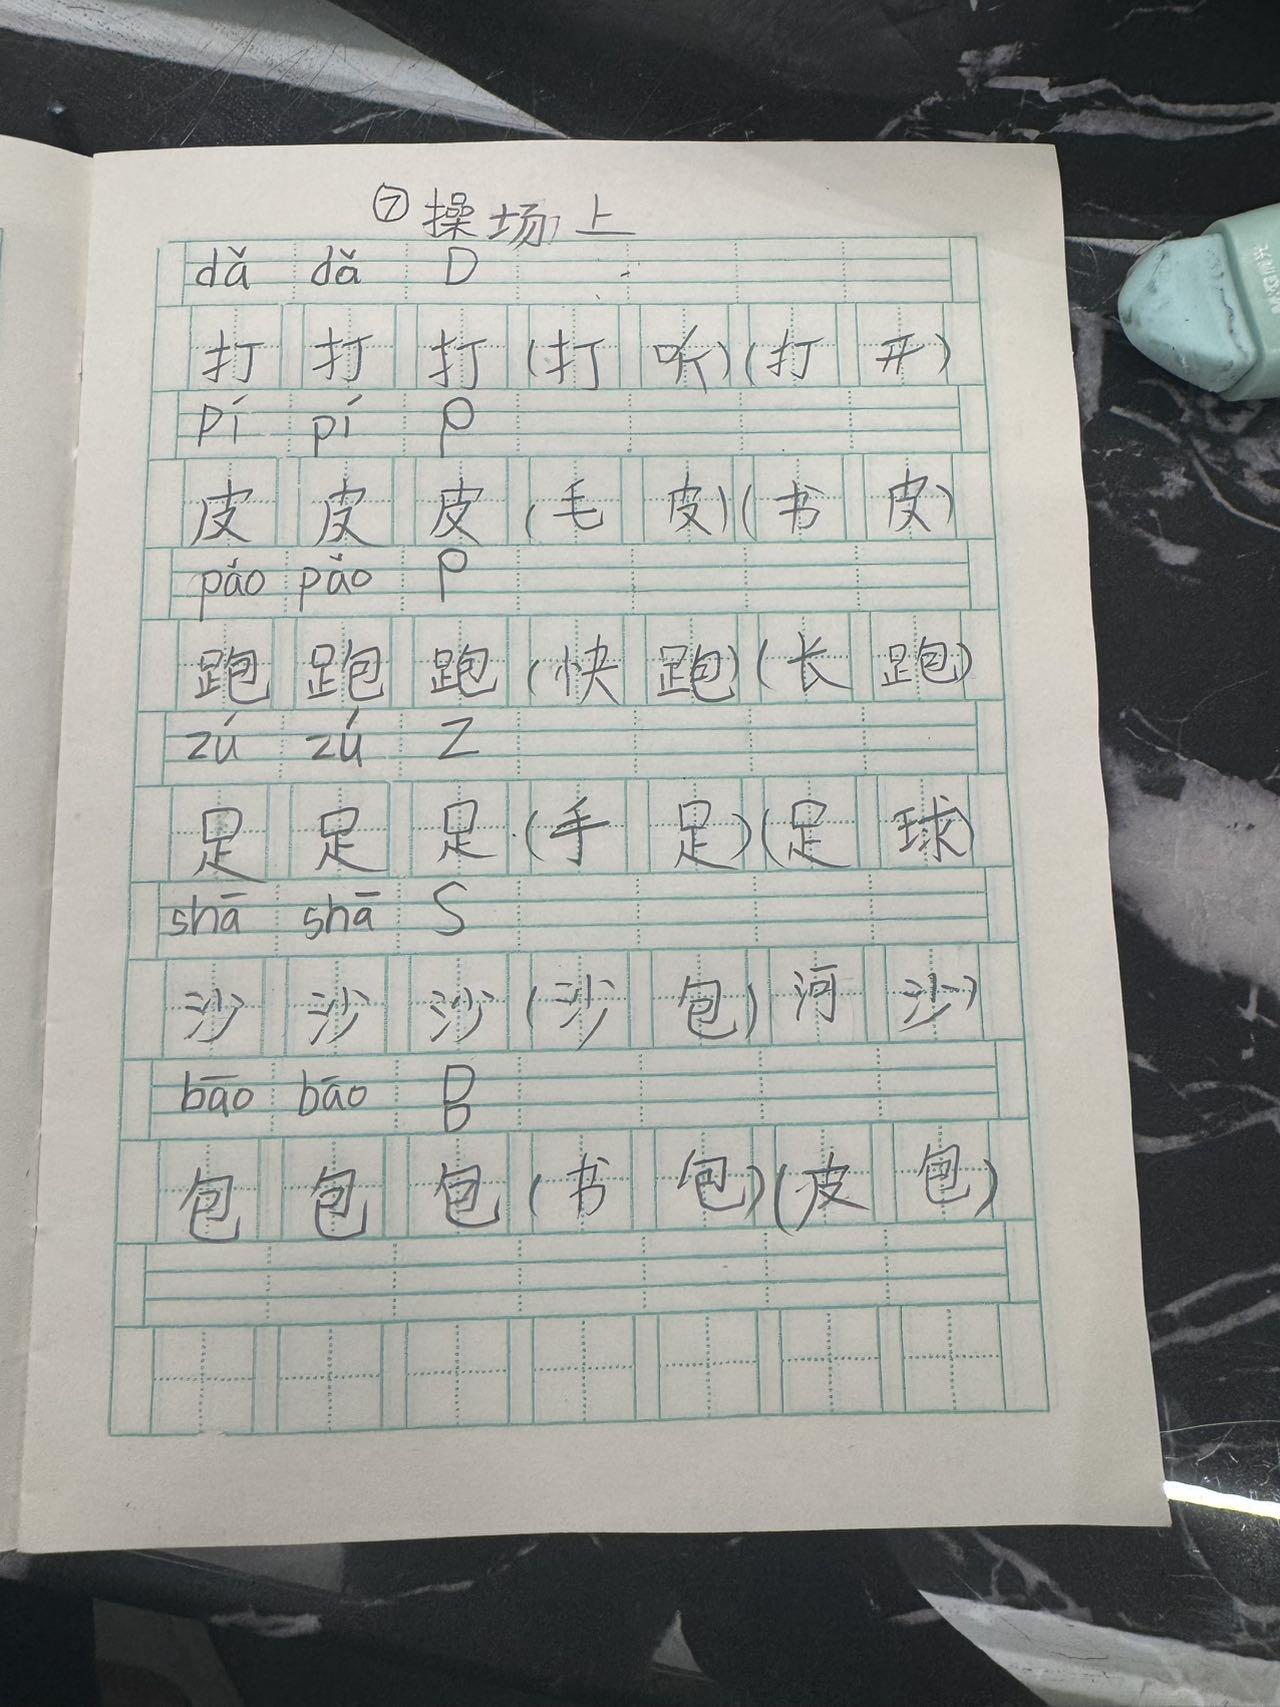 ⑦操场上
dǎ dǎ D
打 打 打 (打 听) (打 开)
pí pí P
皮 皮 皮 (毛 皮) (书 皮)
pǎo pǎo P
跑 跑 跑 (快 跑) (长 跑)
zú zú Z
足 足 足 (手 足) (足 球)
shā shā S
沙 沙 沙 (沙 包) 河 沙)
bāo bāo B
包 包 包 (书 包) (皮 包)